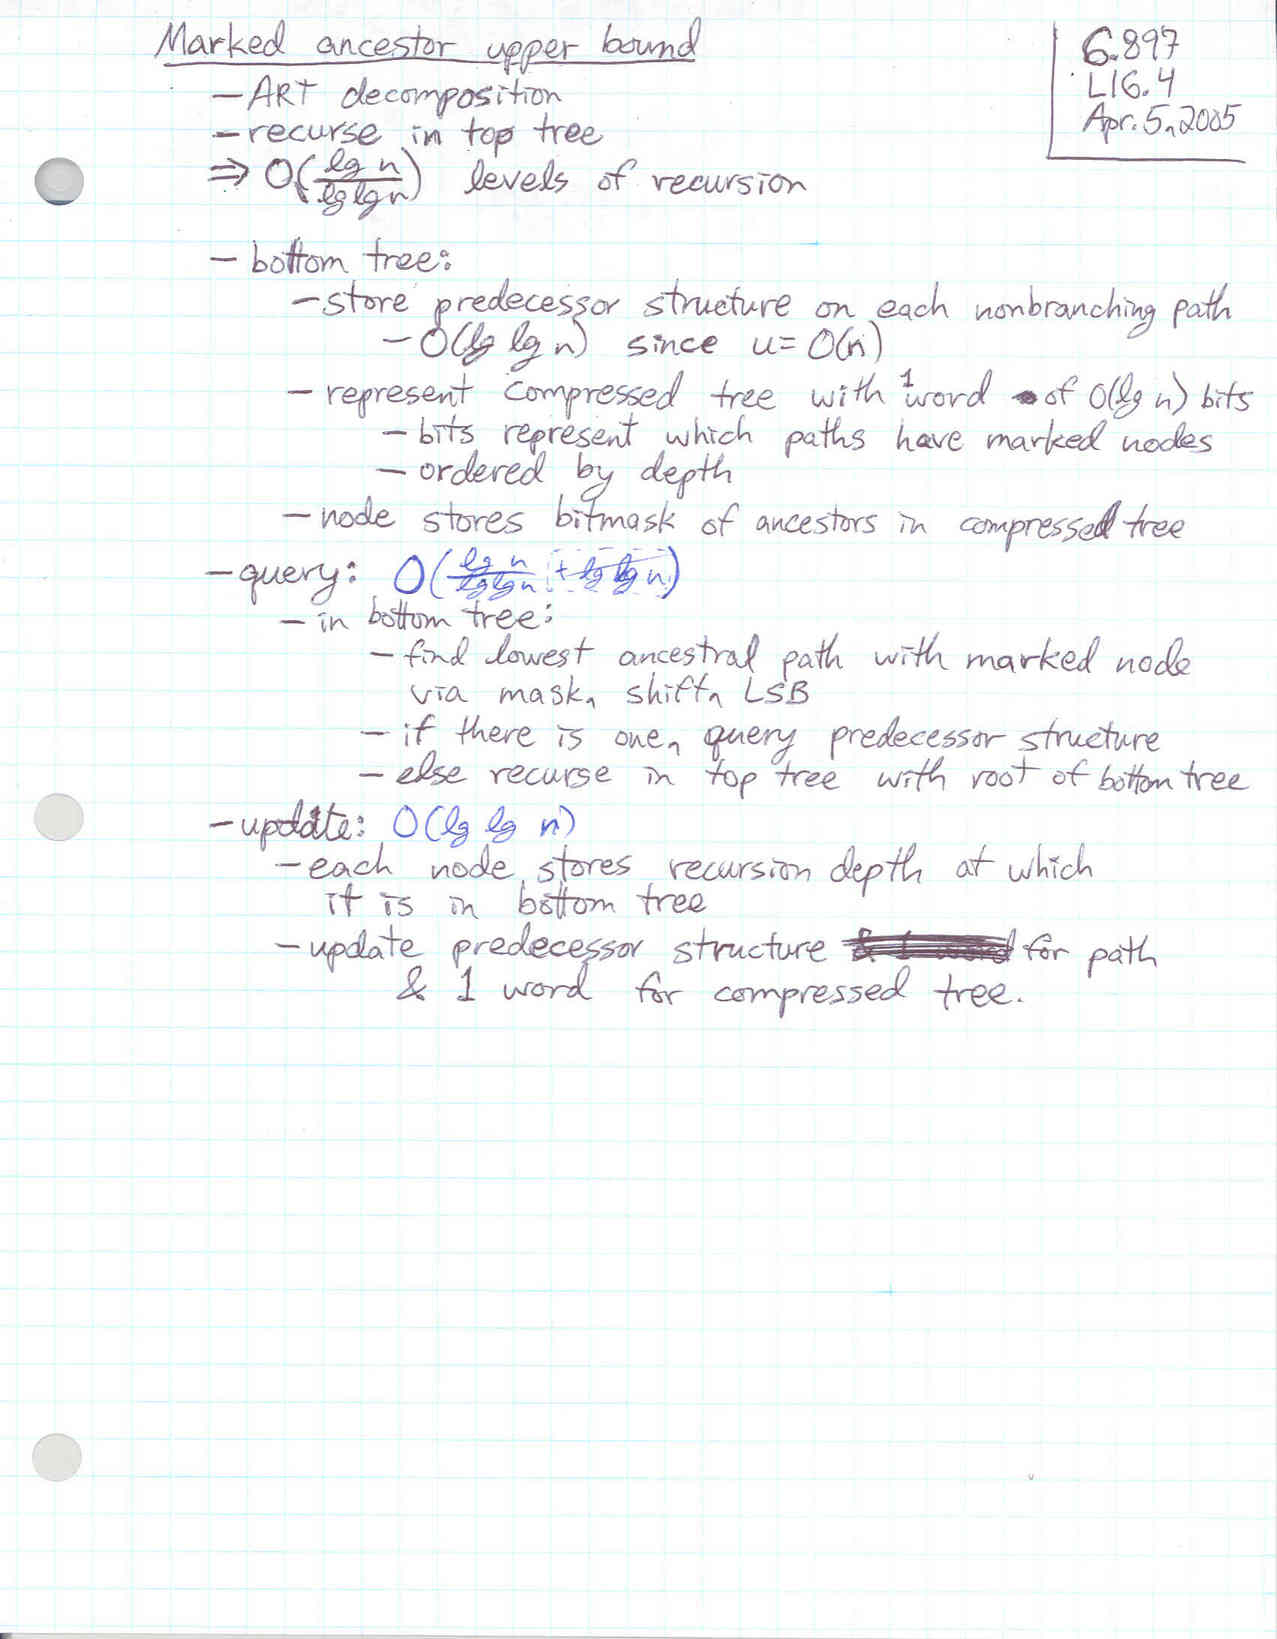 Marked ancestor upper bound
6.897
L16.4
Apr. 5, 2005
- ART decomposition
- recurse in top tree
⇒ O(lg n / lg lg n) levels of recursion
- bottom tree:
- store predecessor structure on each nonbranching path
- O(lg lg n) since u = O(n)
- represent compressed tree with 1 word of O(lg n) bits
- bits represent which paths have marked nodes
- ordered by depth
- node stores bitmask of ancestors in compressed tree
- query: O(lg n / lg lg n + lg lg n)
- in bottom tree:
- find lowest ancestral path with marked node
via mask, shift, LSB
- if there is one, query predecessor structure
- else recurse in top tree with root of bottom tree
- update: O(lg lg n)
- each node stores recursion depth at which
it is in bottom tree
- update predecessor structure for path
& 1 word for compressed tree.